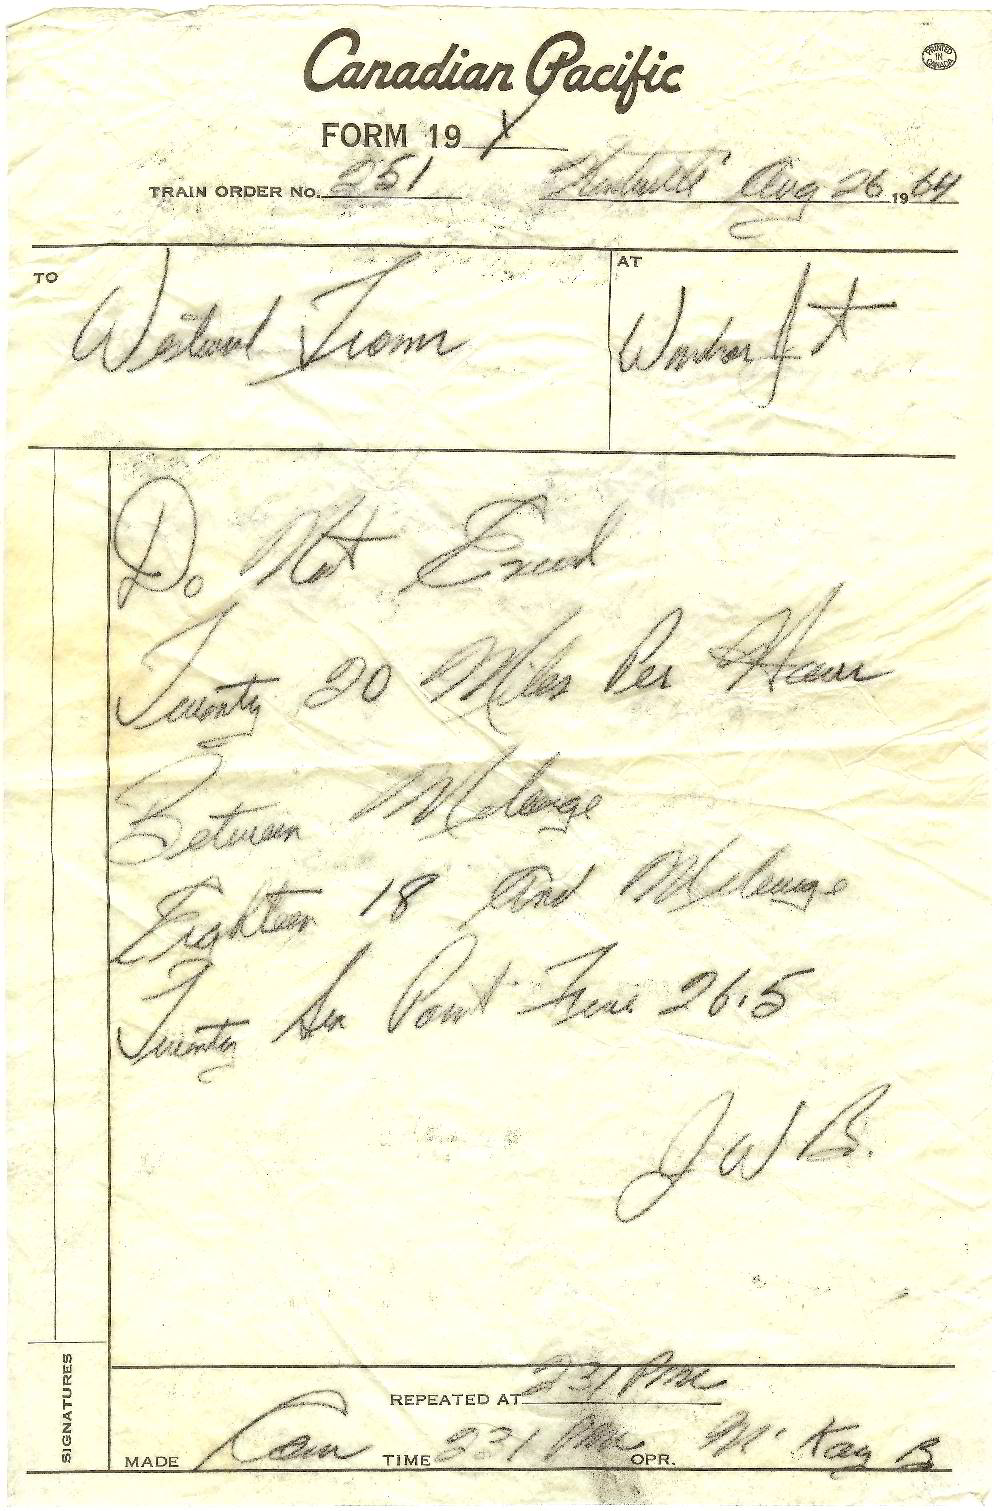 Canadian Pacific
PRINTED IN CANADA
FORM 19 Y
TRAIN ORDER No. 251 Kentville Aug 26 1964
TO Westward Trains AT Windsor Jct
Do Not Exceed
Twenty 20 Miles Per Hour
Between Mileage
Eighteen 18 And Mileage
Twenty Six Point Five 26.5
J W B.
REPEATED AT 231 Pm
SIGNATURES
MADE Com TIME 231 Pm OPR. McKay B